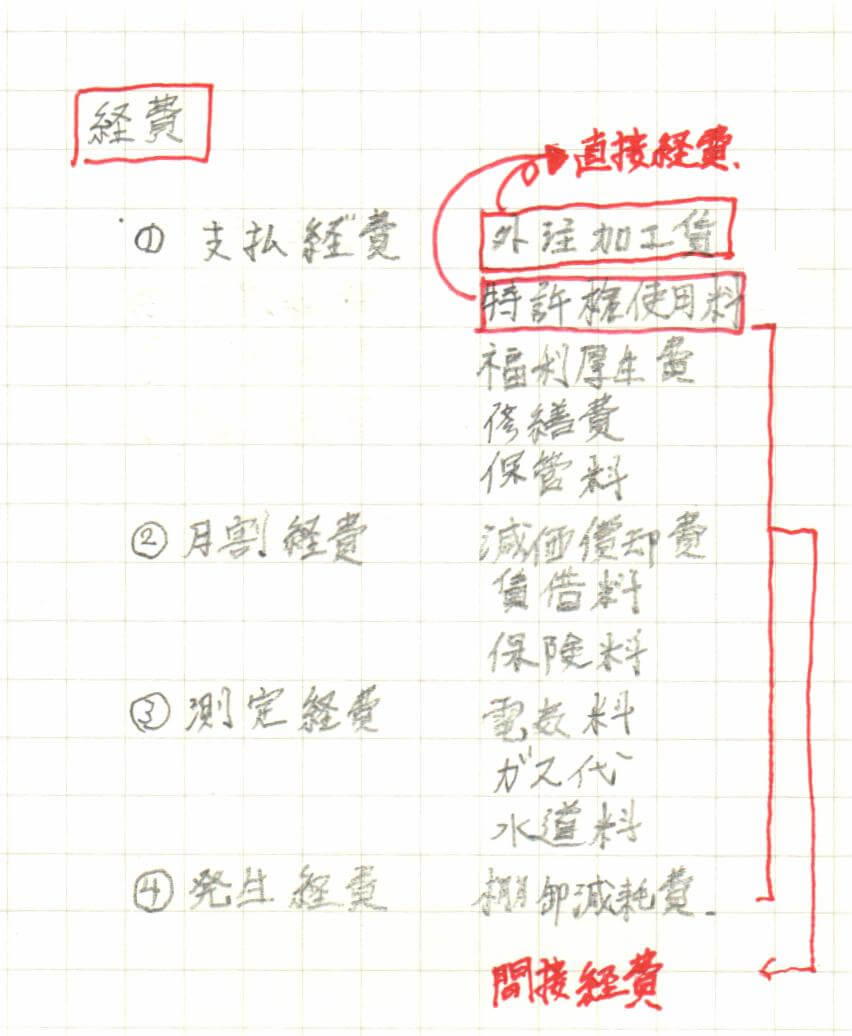 経費
直接経費.
① 支払経費 外注加工賃
特許権使用料
福利厚生費
修繕費
保管料
② 月割経費 減価償却費
賃借料
保険料
③ 測定経費 電気料
ガス代
水道料
④ 発生経費 棚卸減耗費.
間接経費